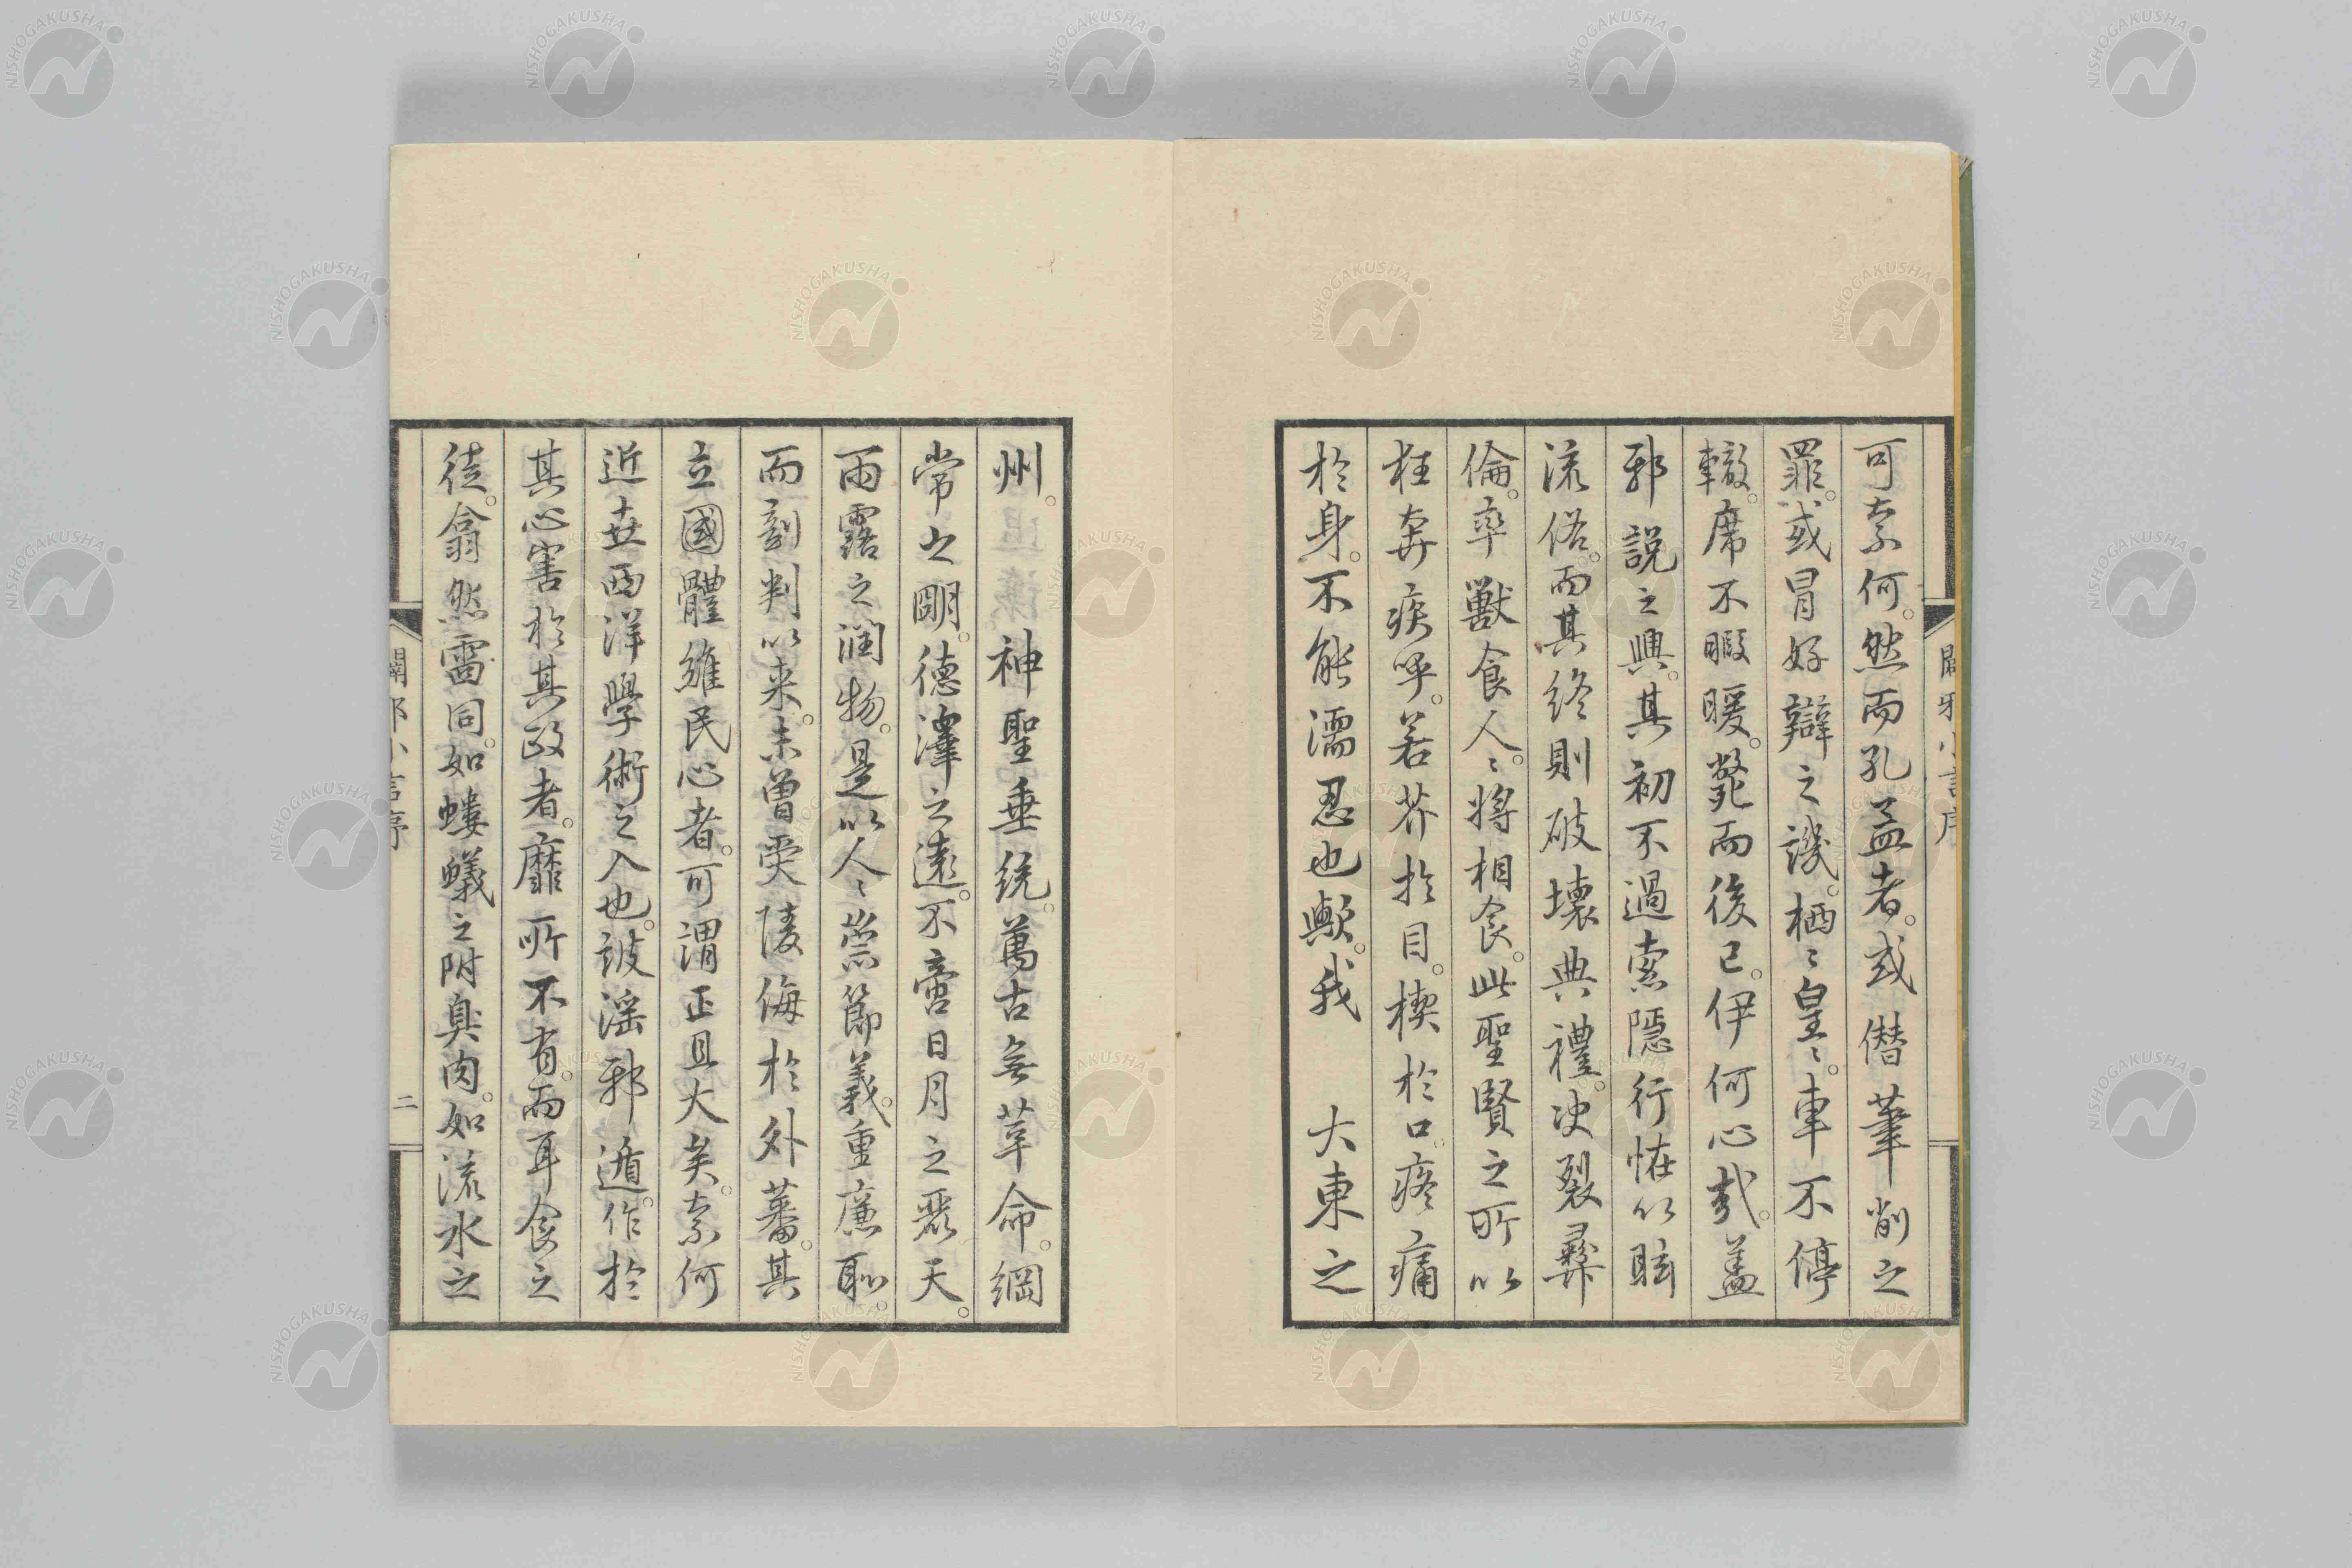 可奈何。然而孔孟者。或僭華削之
罪。或冒好辯之譏。栖〻皇〻。車不停
轍。席不暇暖。斃而後已。伊何心哉。蓋
邪説之興。其初不過索隱行怪以眩
流俗。而其終則破壞典禮。决裂彛
倫。率獸食人。〻將相食。此聖賢之所以
狂奔疾呼。若芥於目。楔於口。疼痛
於身。不能濡忍也歟。我 大東之
州。 神聖垂統。萬古無革命。綱
常之明。德澤之遠。不啻日月之麗天。
雨露之潤物。是以人〻崇節義。重廉恥。
而剖判以来。未曽受陵侮於外蕃。其
立國體維民心者。可謂正且大矣。奈何
近世西洋學術之入也。詖淫邪遁。作於
其心害於其政者。靡所不有。而耳食之
徒。翕然雷同。如螻蟻之附臭肉。如流水之
闢邪小言序
二
NISHOGAKUSHA